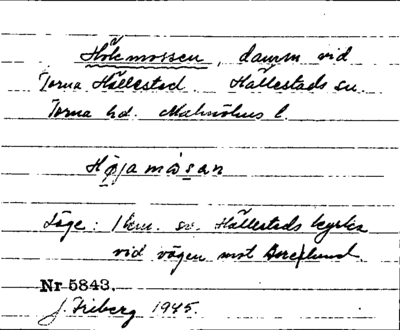 Hökmossen, damm vid
Torna Hällestad Hällestads sn.
Torna hd. Malmöhus l.
Högamosan
Läge: 1 km. sv. Hällestads kyrka
vid vägen mot
Nr 5843.
J. Friberg 1945.